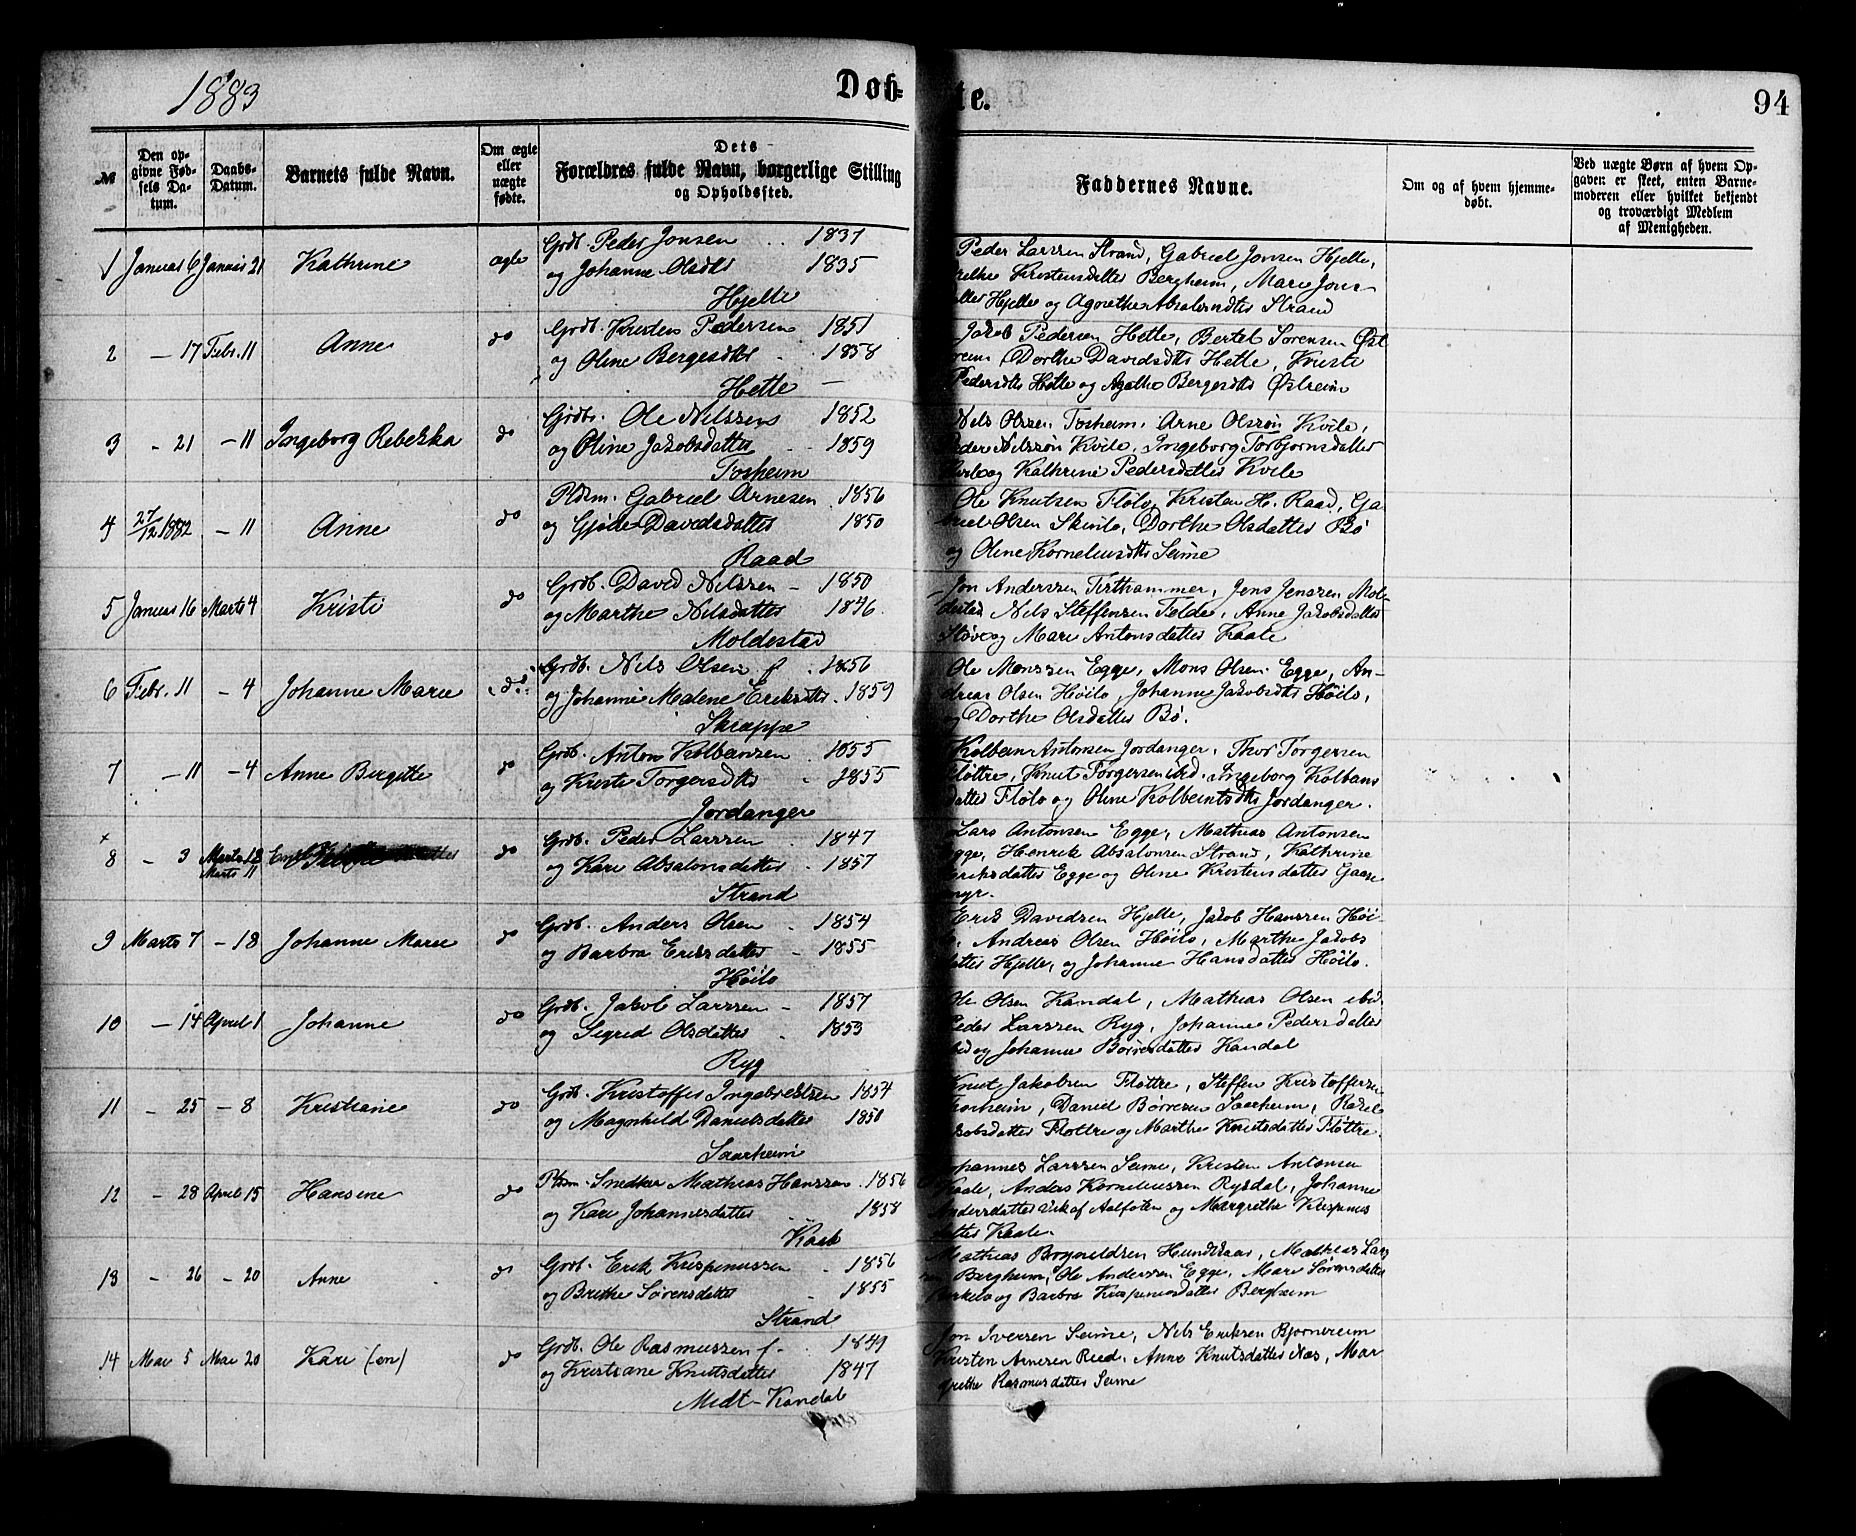 1883
Døb-
te.
94
№
Den op-
givne Fød-
sels Da-
tum.
Daabs-
Datum.
Barnets fulde Navn.
Om ægte
eller
uægte
fødte.
Dets
Forældres fulde Navn, borgerlige Stilling
og Opholdssted.
Faddernes Navne.
Om og af hvem hjemme-
døbt.
Ved uægte Børn af hvem Op-
gaven er skeet, enten Barne-
moderen eller hvilket bekjendt
og troværdigt Medlem
af Menigheden.
1 Januar 6 Januar 21 Kathrine ægte
Grdb. Peder Jonsen 1831
og Johanne Olsdtr 1835
Hjelle
Peder Larssen Strand, Gabriel Jonsen Hjelle,
Kristensdatter Bergheim, Mari Jons-
Hjelle og Agnethe Absalonsdtr Strand
2 — 17 Febr. 11 Anne do
Grdb. Kristen Pedersen 1851
og Oline Bergesdtr 1858
Hetle
Jakob Pedersen Hetle, Bertel Sørensen Øst
reim Dorthe Davidsdtr Hetle, Kristi
Pedersdtr Hetle og Agathe Bergesdtr Østreim
3 - 21 - 11 Ingeborg Rebekka do
Grdb. Ole Nilssen 1852
og Oline Jakobsdatter 1859
Tosheim
Nils Olssen Tosheim, Arne Olssøn Kvile,
Peder Nilssøn Kvile, Ingeborg Torbjørnsdatter
Kvile og Kathrine Pedersdatter Kvile
4 27/12 1882 - 11 Anne do
Pldsm. Gabriel Arnesen 1856
og Gjøde Davidsdatter 1850
Raad
Ole Knutsen Flølo, Kristen H. Raad, Ga
briel Olsen Skeilo, Dorthe Olsdatter Bø
og Oline Korneliusdtr Seime
5 Januar 16 Marts 4 Kristi do
Grdb. David Nilssen - 1850
og Marthe Nilsdatter 1846
Moldestad
Jon Anderssen Tisthammer, Jens Jenssen Mol-
destad Nils Steffensen Felde, Anne Jakobsdatter
og Mari Antonsdatter Kaale
6 Febr. 11 - 4 Johanne Marie do
Grdb. Nils Olsen f. 1856
og Johanne Malene Eriksdtr. 1859
Skrappe
Ole Monssen Egge, Mons Olsen Egge, An-
dreas Olsen Høilo, Johanne Jakobsdtr Høilo,
og Dorthe Olsdatter Bø.
7 - 11 - 4 Anne Bergitte do
Grdb. Anton Kolbensen 1855
og Kristi Torgersdtr 1855
Jordanger
Kolben Antonsen Jordanger, Thor Torgersen
Fløttre, Knut Torgersen ibid. Ingeborg Kolbens
datter Flølo og Oline Kolbeinsdtr Jordanger.
8 - 3 Marts 18
Marts 11 do
Grdb. Peder Larssen 1847
og Kari Absalonsdatter 1857
Strand
Lars Antonsen Egge, Mathias Antonsen
Egge, Henrik Absalonsen Strand, Kathrine
Eriksdatter Egge og Oline Kristensdatter Gaase
myr.
9 Marts 7 - 18 Johanne Marie do
Grdb. Anders Olsen 1854
og Barbra Eriksdatter 1855
Høilo
Erik Davidsen Hjelle, Jakob Hanssen Høi-
lo, Andreas Olsen Høilo, Marthe Jakobs
datter Hjelle, og Johanne Hansdatter Høilo.
10 - 14 April 1 Johanne do
Grdb. Jakob Larssen - 1857
og Sigrid Olsdatter 1853
Ryg
Ole Olsen Kandal, Mathias Olsen ibid.
Peder Larssen Ryg, Johanne Pedersdatter
ibid og Johanne Børresdatter Kandal
11 - 25 - 8 Kristiane do
Grdb. Kristoffer Ingebrektsen 1854
og Magnhild Danielsdatter 1850
Saarheim
Knut Jakobsen Fløttre, Steffen Kristoffersen
Tosheim, Daniel Børresen Saarheim, Rakel
Jakobsdatter Fløttre og Marthe Knutsdatter Fløttre.
12 - 28 April 15 Hansine do
Pldsm. Snedker Mathias Hanssen 1856
og Kari Johannesdatter 1858
Kaale
Johannes Larssen Seime, Kristen Antonsen
Kaale, Anders Korneliussen Rysdal, Johanne
Andersdatter Vik af Aalfoten og Margrethe Krispinus
datter Kaale.
13 - 26 - 20 Anne do
Grdb. Erik Krispinussen 1856
og Brithe Sørensdatter 1855
Strand
Mathias Bognildsen Hundskaar, Mathias Lars
sen Bergheim, Ole Anderssen Egge, Mari Sørensdatter
og Barbra Krispinusdatter Bergheim
14 Mai 5 Mai 20 Kari (en) do
Grdb. Ole Rasmussen f. 1849
og Kristiane Knutsdatter 1847
Midt-Kandal
Jon Iversen Seime, Nils Eriksen Bjørnereim
Kristen Arnesen Reed, Anne Knutsdatter Næs, Mar
grethe Rasmusdatter Seime